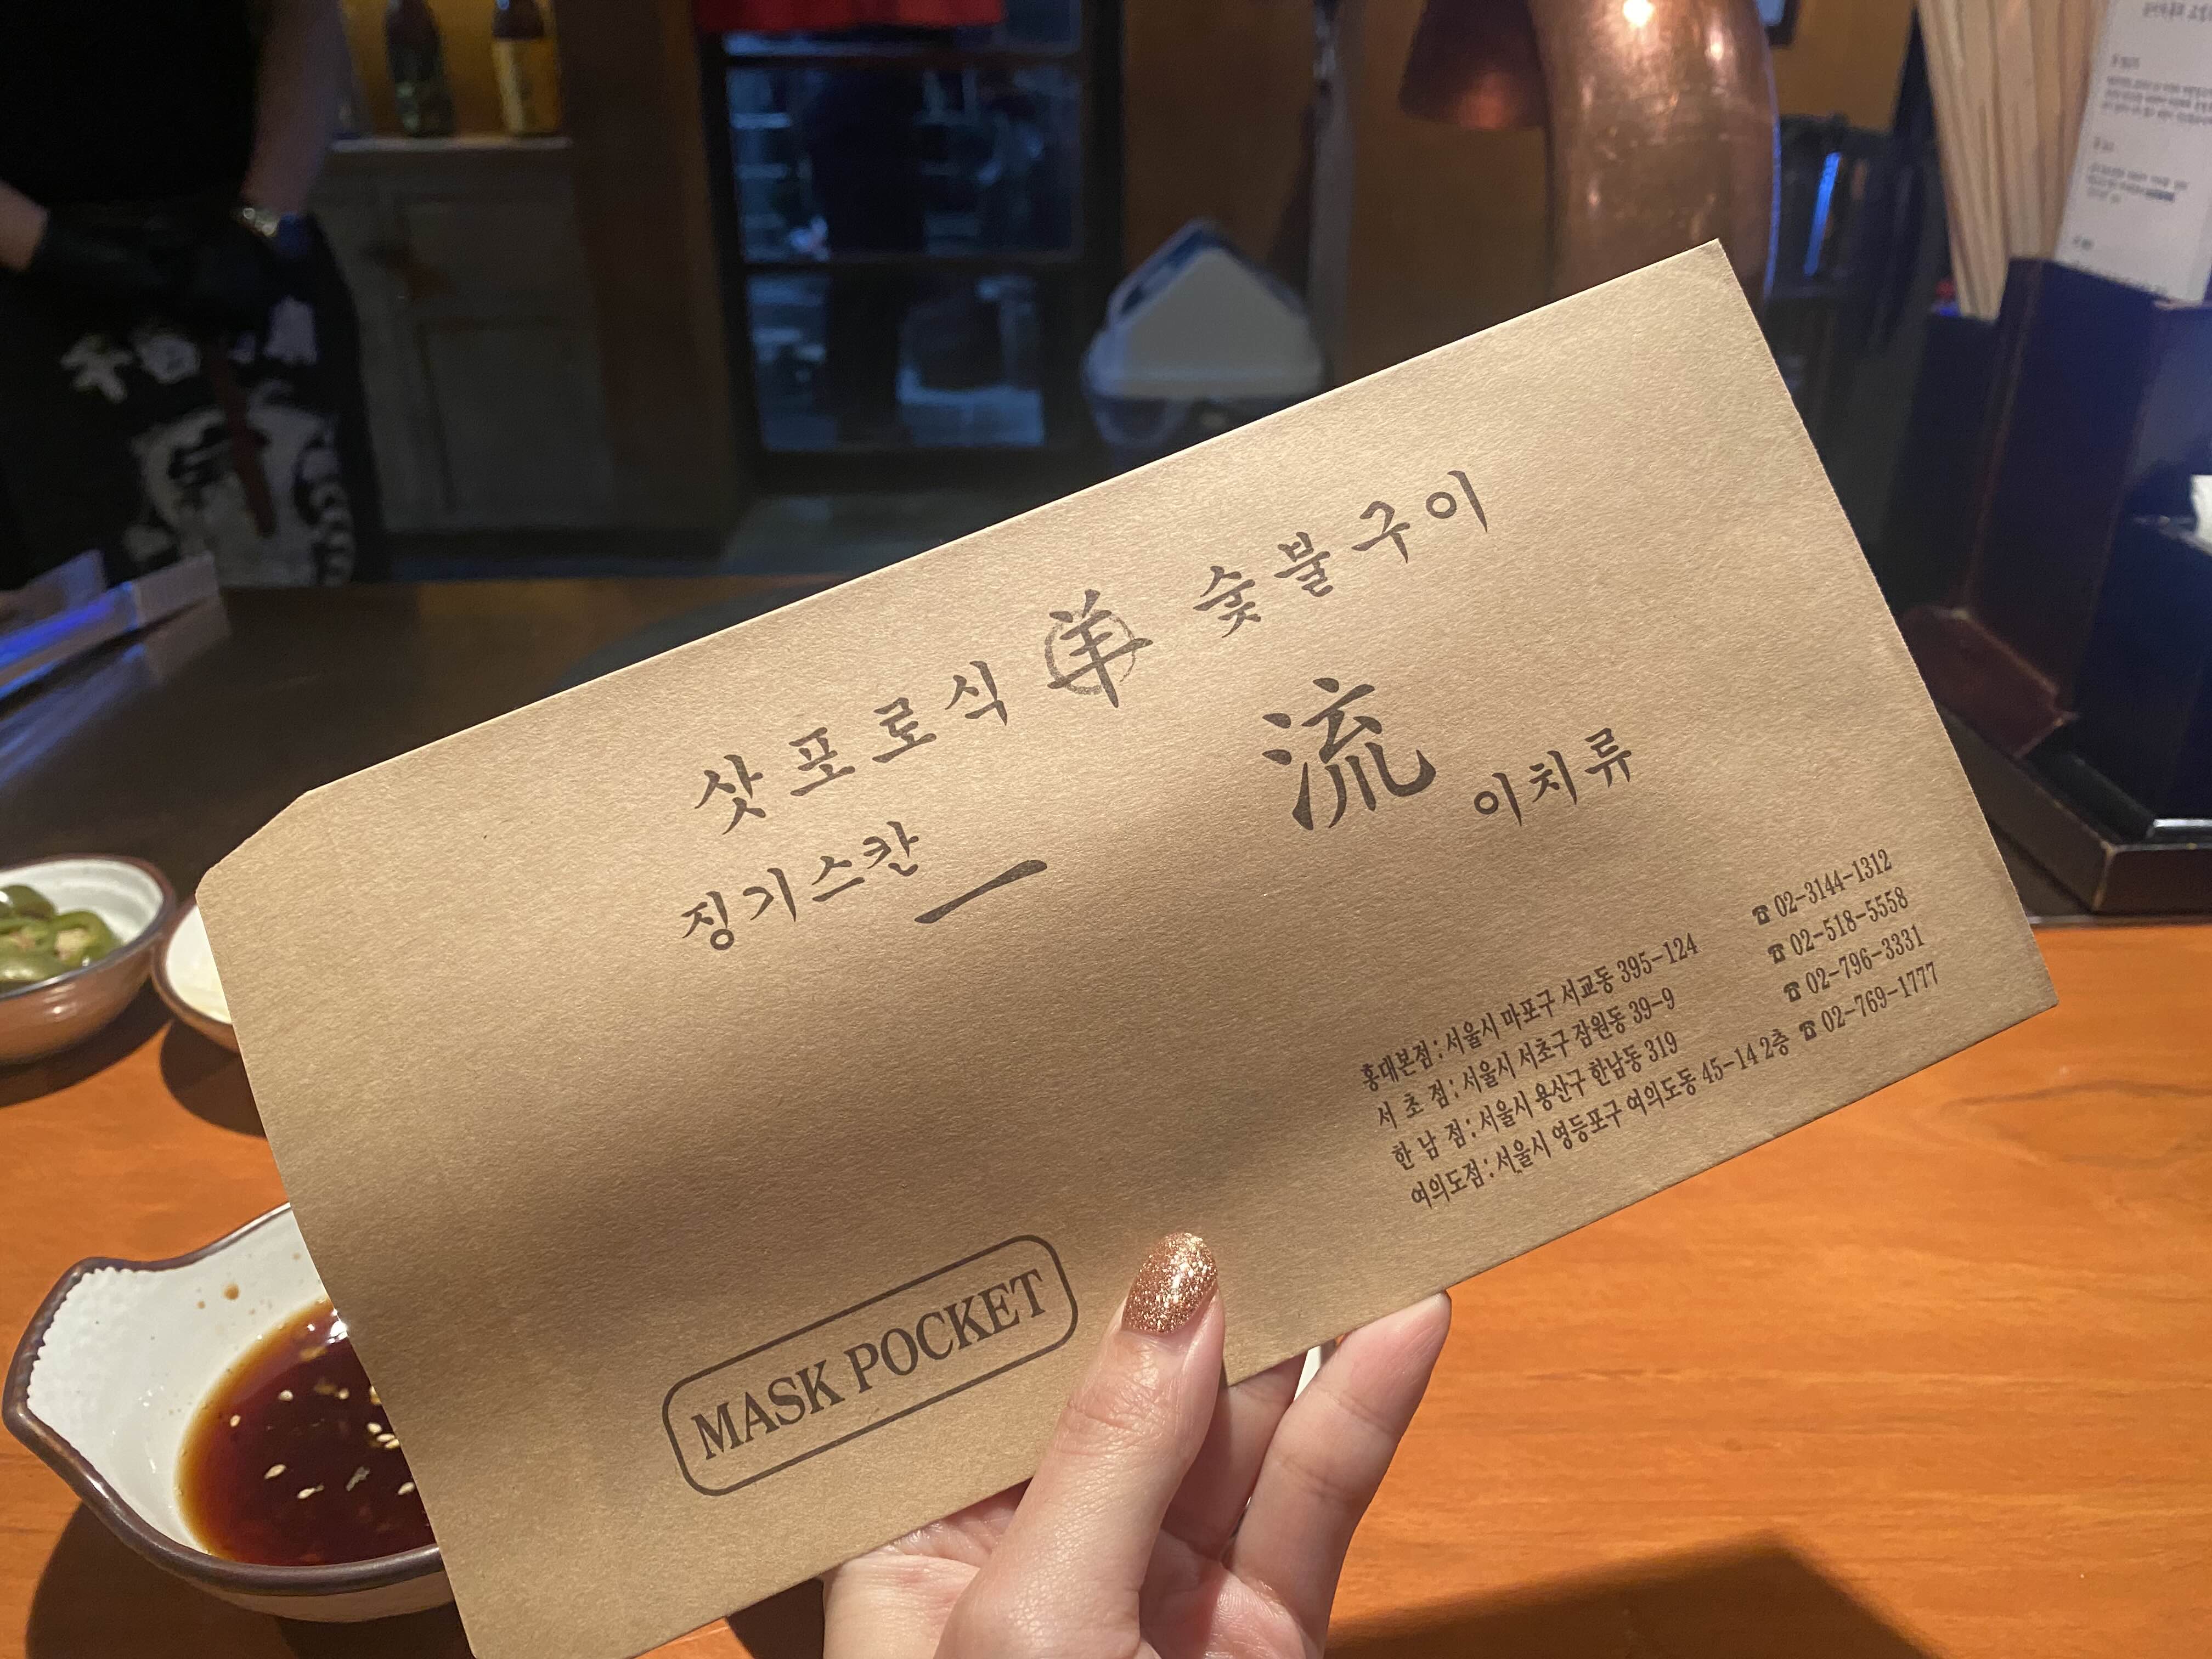 삿포로식 羊 숯불구이
징기스칸 一 流 이치류
홍대본점 : 서울시 마포구 서교동 395-124 ☎ 02-3144-1312
서 초 점 : 서울시 서초구 잠원동 39-9 ☎ 02-518-5558
한 남 점 : 서울시 용산구 한남동 319 ☎ 02-796-3331
여의도점 : 서울시 영등포구 여의도동 45-14 2층 ☎ 02-769-1777
MASK POCKET